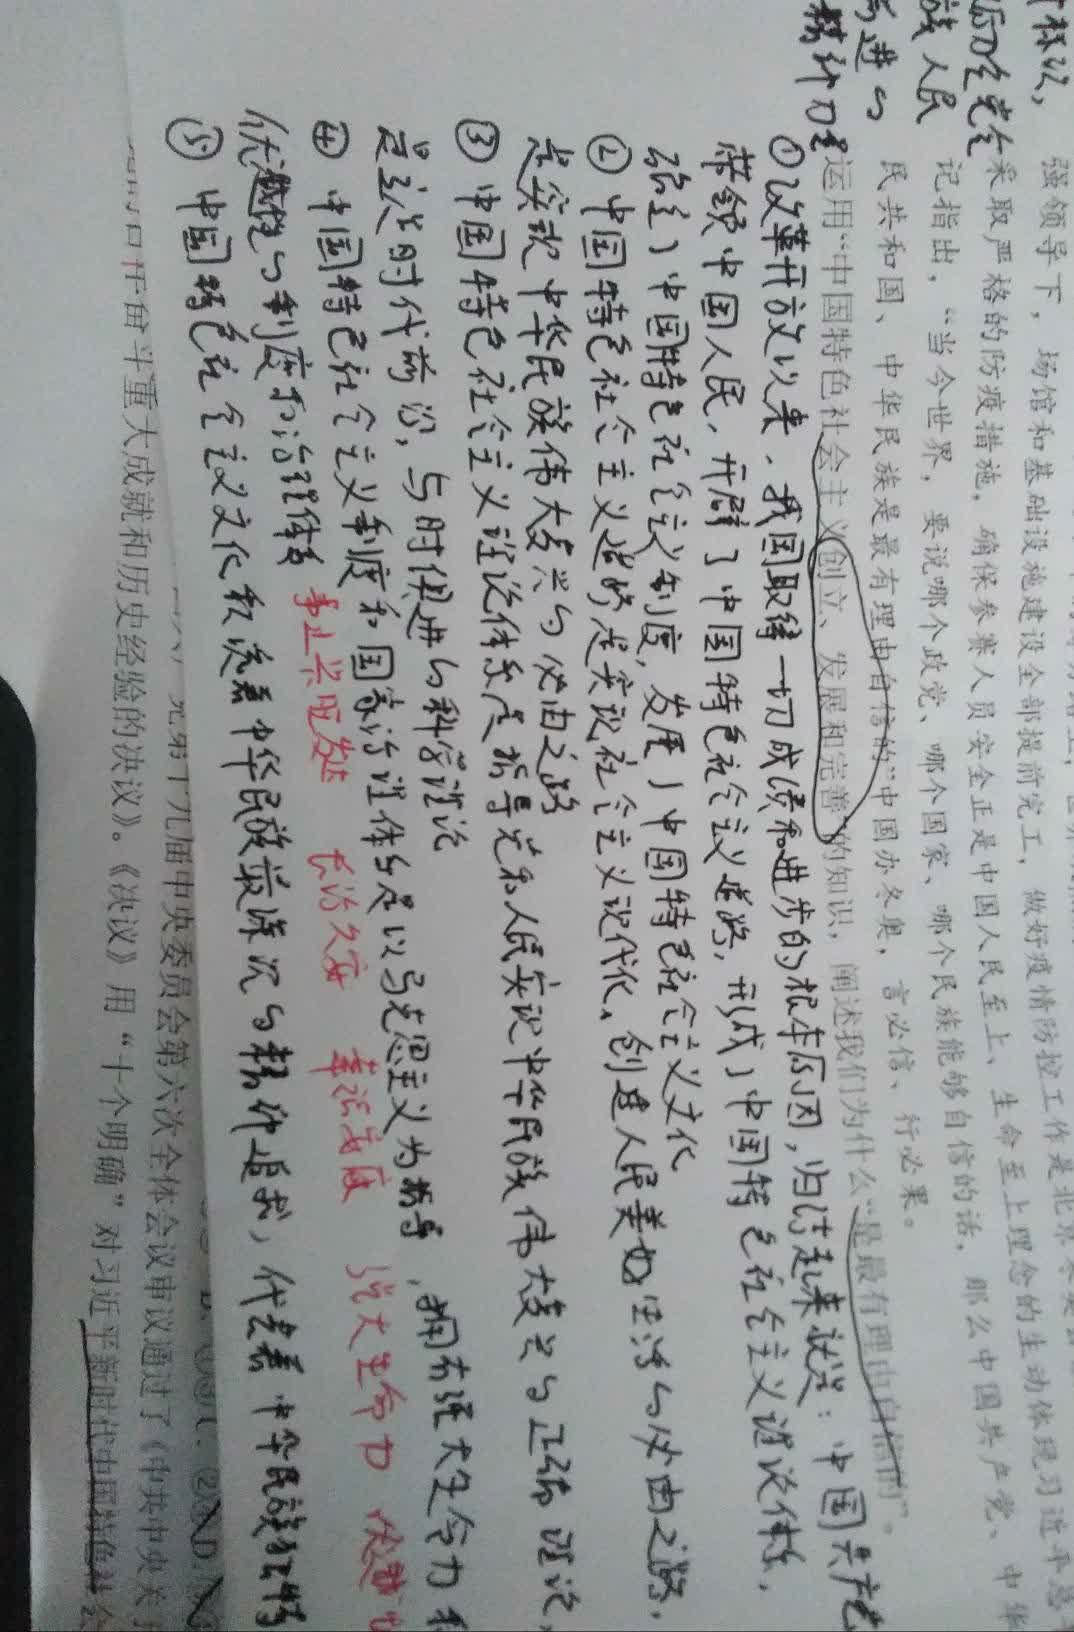 标以,
后力量完全
族人民
与进的
精神力量
强领导下，场馆和基础设施建设全部提前完工，做好疫情防控工作是北京冬奥
采取严格的防疫措施，确保参赛人员安全正是中国人民至上、生命至上理念的生动体现习近平总
记指出，“当今世界，要说哪个政党、哪个国家、哪个民族能够自信的话，那么中国共产党、中华
民共和国、中华民族是最有理由自信的”中国办冬奥，言必信、行必果。
运用“中国特色社会主义创立、发展和完善”的知识，阐述我们为什么“是最有理由自信的”。
①改革开放以来，我国取得一切成绩和进步的根本原因，归结起来就是：中国共产党
带领中国人民，开辟了中国特色社会主义道路，形成了中国特色社会主义理论体系，
确立了中国特色社会主义制度，发展了中国特色社会主义文化
②中国特色社会主义道路是实现社会主义现代化，创造人民美好生活的必由之路，
是实现中华民族伟大复兴的必由之路
③中国特色社会主义理论体系是指导党和人民实现中华民族伟大复兴的正确理论，
是立于时代前沿，与时俱进的科学理论
④中国特色社会主义制度和国家治理体系是以马克思主义为指导，拥有强大生命力和
优越性的制度和治理体系
事业兴旺发达 长治久安 强大生命力
⑤中国特色社会主义文化积淀着中华民族最深沉的精神追求，代表着中华民族独特
九届中央委员会第六次全体会议审议通过了《中共中央关于
奋斗重大成就和历史经验的决议》。《决议》用“十个明确”对习近平新时代中国特色社会